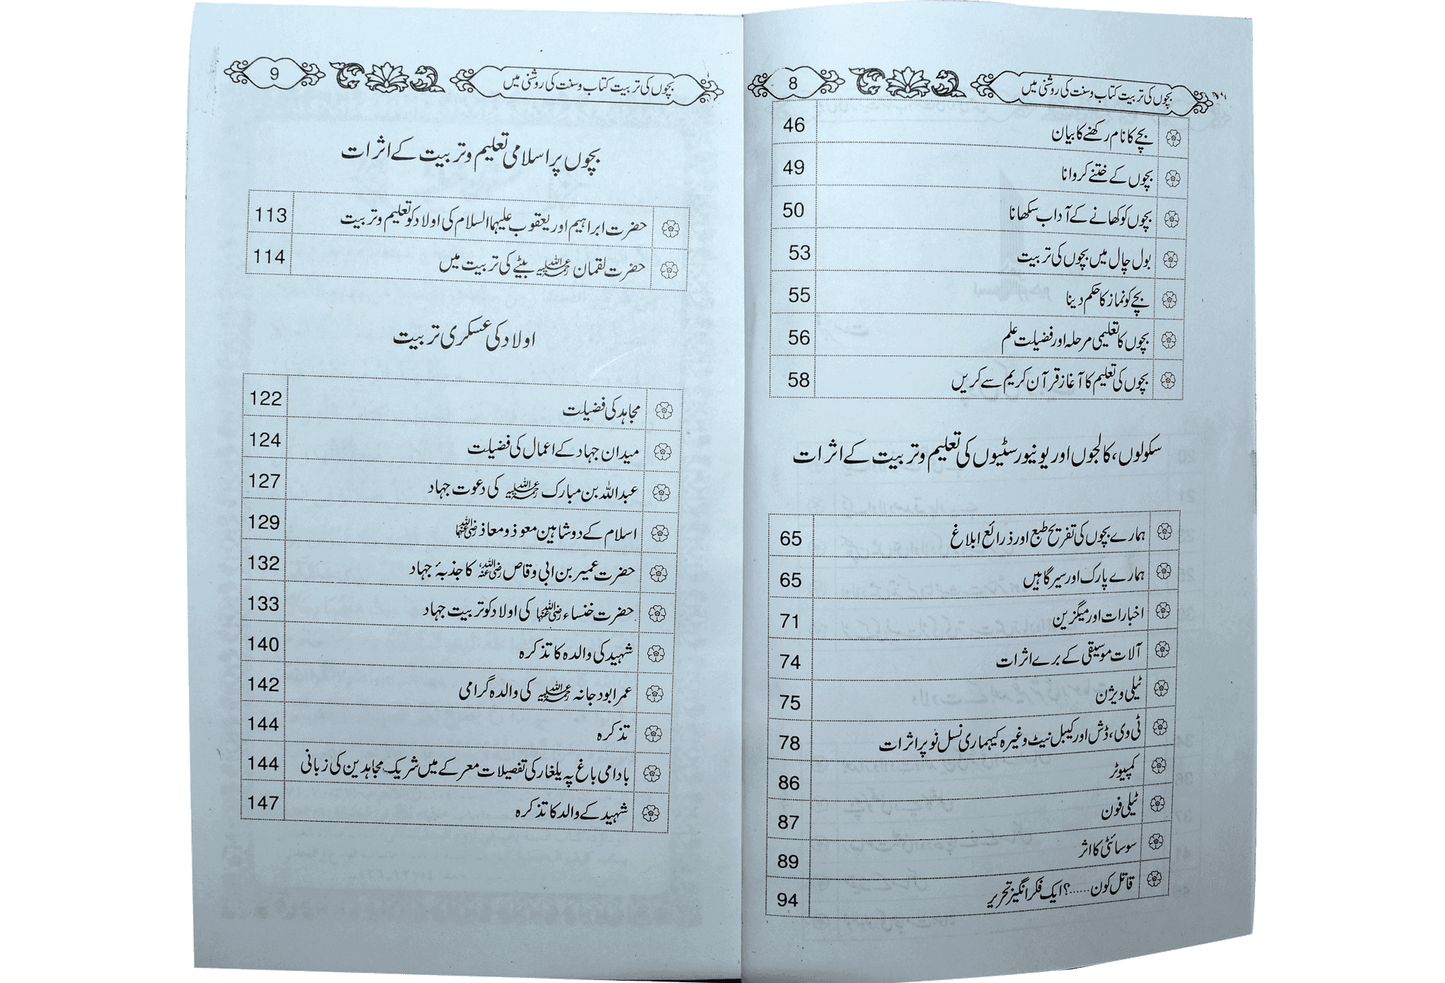 بچوں کی تربیت کتاب و سنت کی روشنی میں 8
بچے کا نام رکھنے کا بیان 46
بچوں کے ختنے کروانا 49
بچوں کو کھانے کے آداب سکھانا 50
بول چال میں بچوں کی تربیت 53
بچے کو نماز کا حکم دینا 55
بچوں کا تعلیمی مرحلہ اور فضیلت علم 56
بچوں کی تعلیم کا آغاز قرآن کریم سے کریں 58
سکولوں، کالجوں اور یونیورسٹیوں کی تعلیم و تربیت کے اثرات
ہمارے بچوں کی تفریح طبع اور ذرائع ابلاغ 65
ہمارے پارک اور سیر گاہیں 65
اخبارات اور میگزین 71
آلات موسیقی کے برے اثرات 74
ٹیلی ویژن 75
ٹی وی، ڈش اور کیبل نیٹ وغیرہ کیہماری نسل نو پر اثرات 78
کمپیوٹر 86
ٹیلی فون 87
سوسائٹی کا اثر 89
قاتل کون......؟ ایک فکر انگیز تحریر 94
بچوں کی تربیت کتاب و سنت کی روشنی میں 9
بچوں پر اسلامی تعلیم و تربیت کے اثرات
حضرت ابراہیم اور یعقوب علیہما السلام کی اولاد کو تعلیم و تربیت 113
حضرت لقمان رحمۃ اللہ علیہ بیٹے کی تربیت میں 114
اولاد کی عسکری تربیت
مجاہد کی فضیلت 122
میدان جہاد کے اعمال کی فضیلت 124
عبداللہ بن مبارک رحمۃ اللہ علیہ کی دعوت جہاد 127
اسلام کے دو شاہین معوذ و معاذ رضی اللہ عنہما 129
حضرت عمیر بن ابی وقاص رضی اللہ عنہ کا جذبۂ جہاد 132
حضرت خنساء رضی اللہ عنہا کی اولاد کو تربیت جہاد 133
شہید کی والدہ کا تذکرہ 140
عمر ابودجانہ رحمۃ اللہ علیہ کی والدہ گرامی 142
تذکرہ 144
بادامی باغ پہ یلغار کی تفصیلات معرکے میں شریک مجاہدین کی زبانی 144
شہید کے والد کا تذکرہ 147